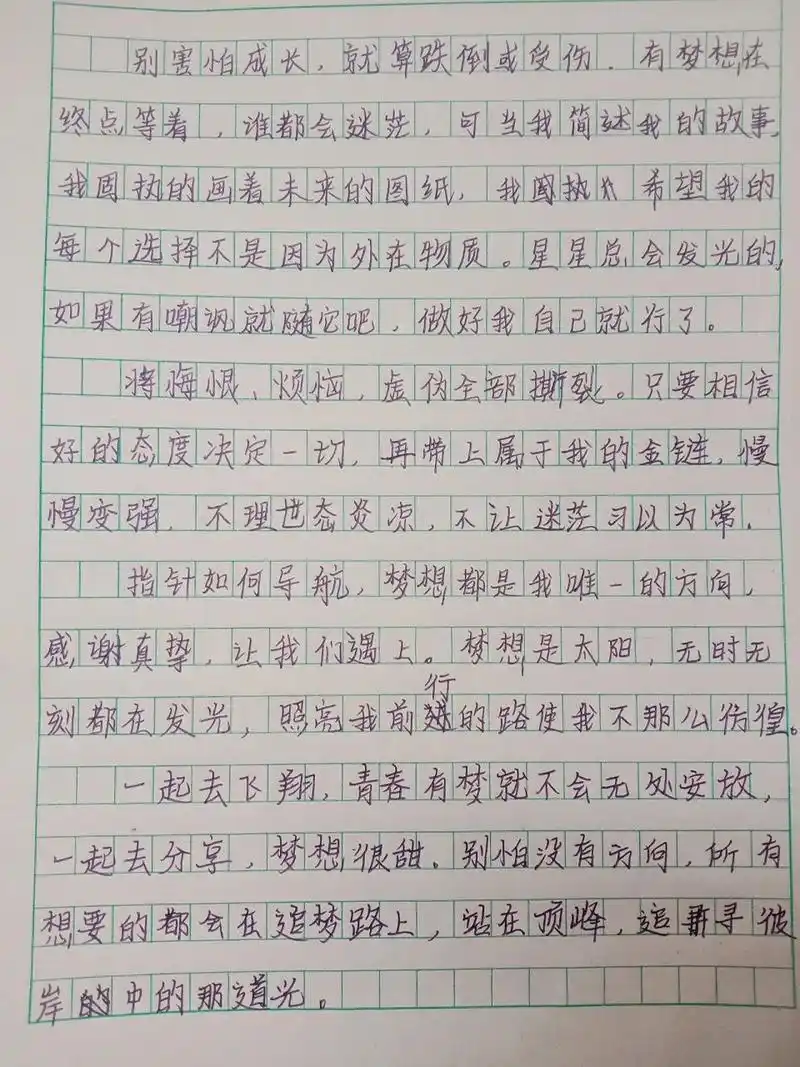 别害怕成长，就算跌倒或受伤．有梦想在
终点等着，谁都会迷茫，可当我简述我的故事，
我固执的画着未来的图纸，我固执 希望我的
每个选择不是因为外在物质。星星总会发光的，
如果有嘲讽就随它吧，做好我自己就行了。
将悔恨、烦恼，虚伪全部撕裂。只要相信
好的态度决定一切，再带上属于我的金链，慢
慢变强．不理世态炎凉，不让迷茫习以为常．
指针如何导航，梦想都是我唯一的方向，
感谢真挚，让我们遇上。梦想是太阳，无时无
刻都在发光，照亮我前行的路使我不那么彷徨。
一起去飞翔，青春有梦就不会无处安放，
一起去分享，梦想很甜．别怕没有方向，所有
想要的都会在追梦路上，站在顶峰，追寻彼
岸的中的那道光。